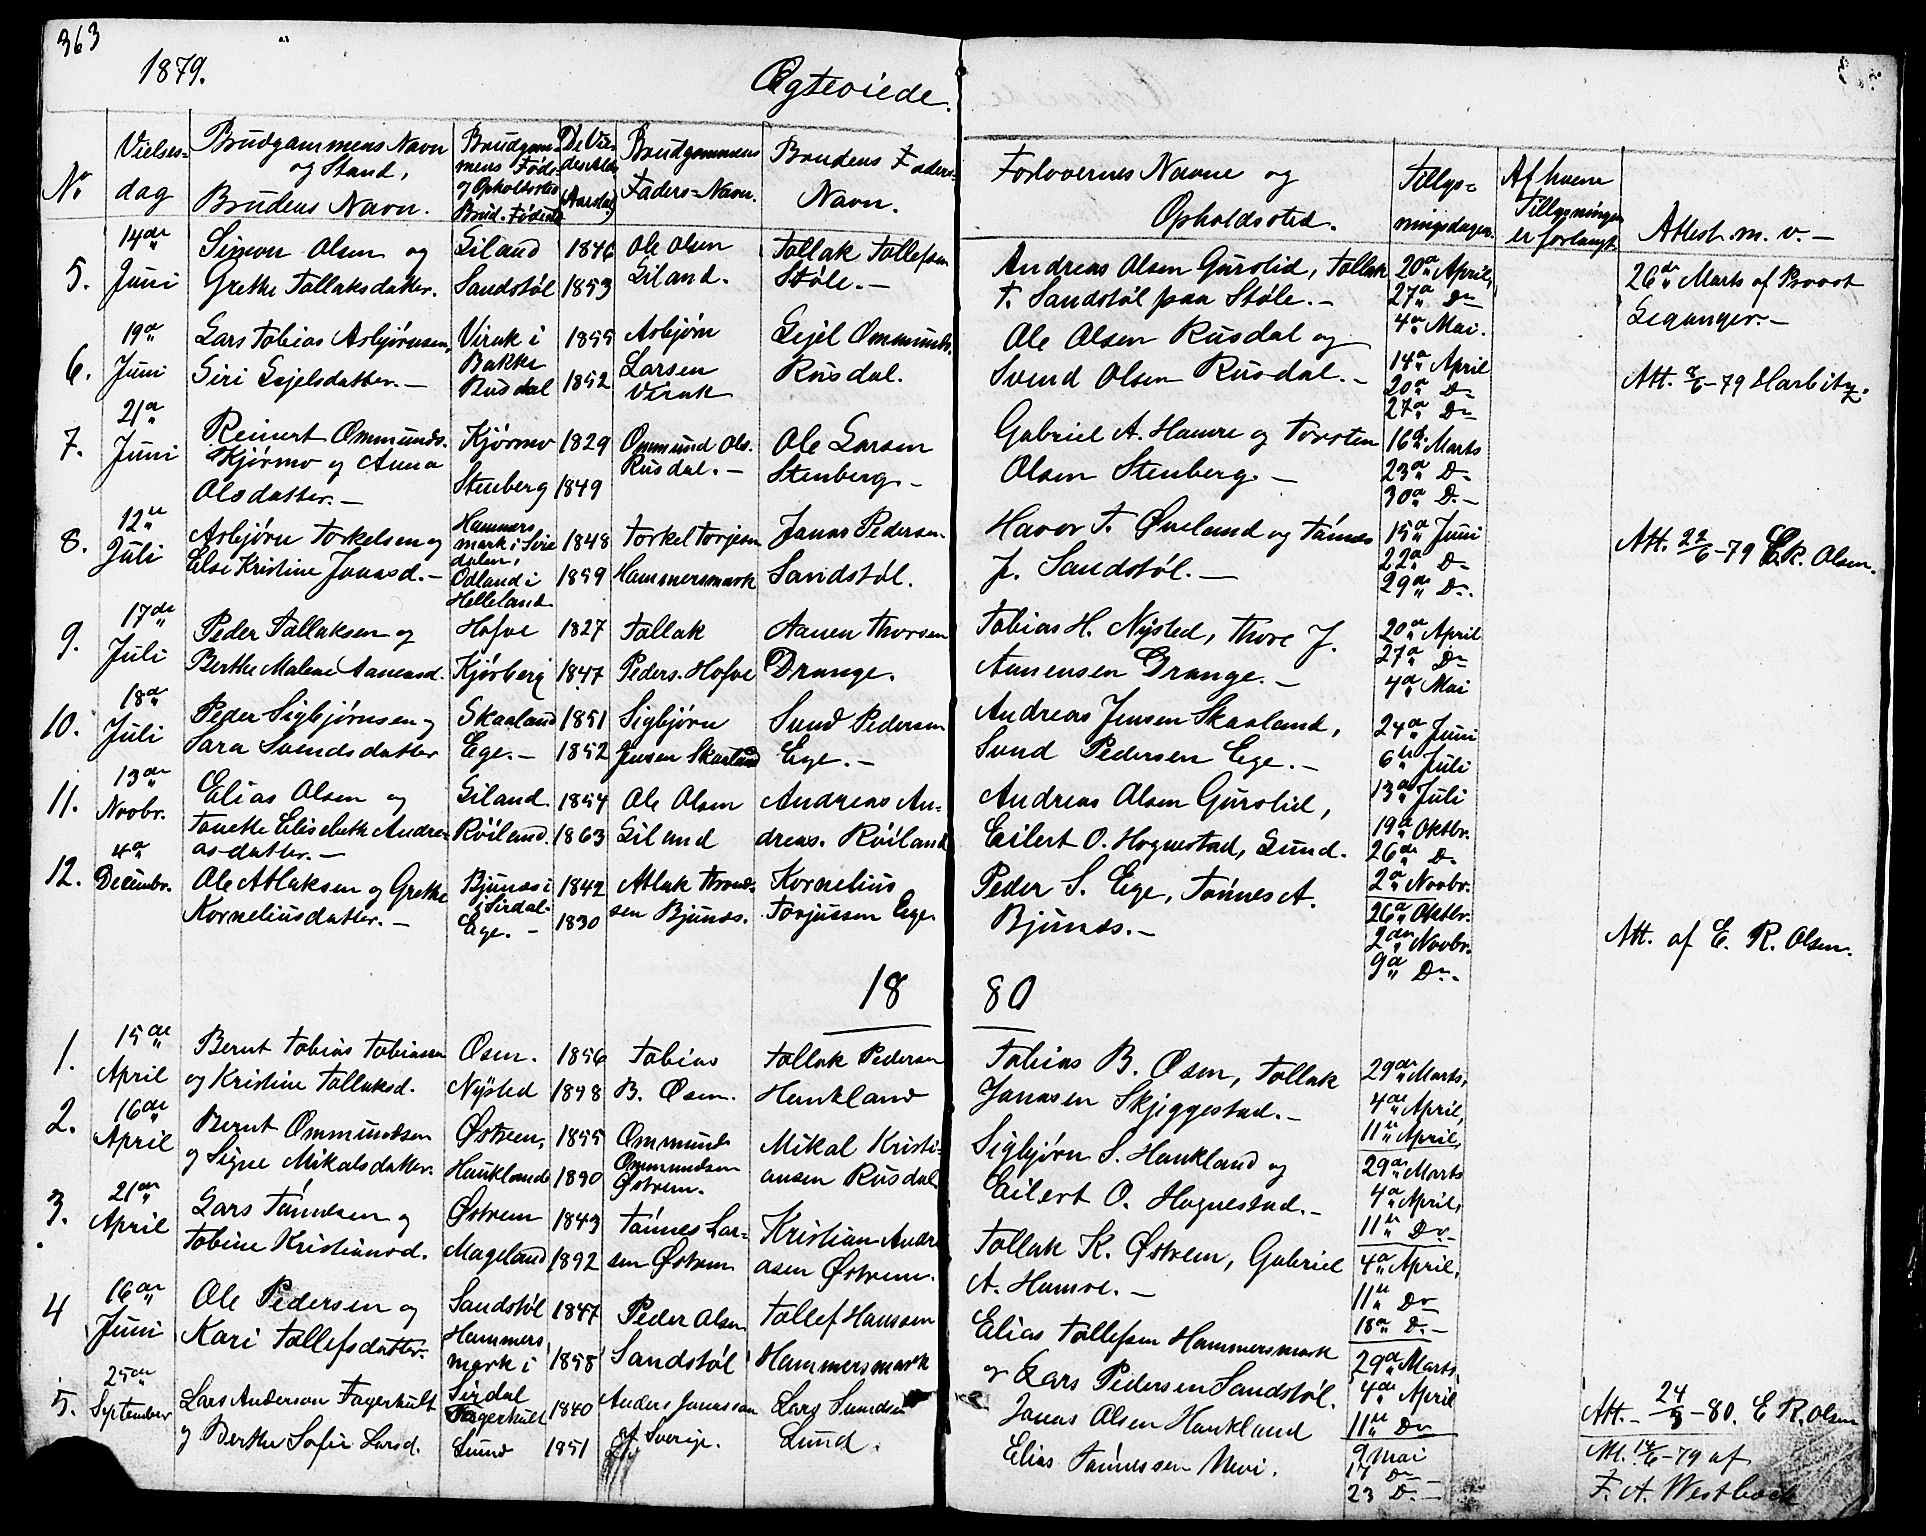 363
1879.
Ægteviede.
No
Vielses=
dag
Brudgammens Navn
og Stand,
Brudens Navn.
Brudgam=
mens Føde
og Opholdssted
Brud. Fødested
De Vie-
des Alder
(Aarstal)
Brudgommens
Faders=Navn.
Brudens Faders=
Navn.
Forlovernes Navne og
Opholdssted.
Tillys=
ningsdagen.
Af hvem
Tillysningen
er forlangt.
Attest m. v. –
5.
14de
Juni
Simon Olsen og
Grethe Tollaksdatter.
Eiland
Sandstøl
1846
1853
Ole Olsen
Eiland.
Tollak Tollefsen
Støle. –
Andreas Olsen Gurslid, Tollak
T. Sandstøl paa Støle. –
20a April,
27a Do
4a Mai.
26de Marts af Provst
Leganger. –
6.
19a
Juni
Lars Tobias Asbjørnsen,
Siri Gjelsdatter. –
Virak i
Bakke
Rusdal
1855
1852
Asbjørn
Larsen
Virak
Gjel Ommunds.
Rusdal.
Ole Olsen Rusdal og
Svend Olsen Rusdal. –
14a April
20a Do
27a Do
Att. 8/6 – 79 Harbitz.
7.
21a
Juni
Reinert Ommunds.
Kjørmo og Anna
Olsdatter. –
Kjørmo
Stenberg
1829
1849
Ommund Ols.
Rusdal. –
Ole Larsen
Stenberg. –
Gabriel A. Hamre og Torsten
Olsen Stenberg. –
16de Marts
23a Do
30a Do –
8.
12te
Juli
Asbjørn Torkelsen og
Elsi Kristine Jonasd. –
Hammers
mark i Sire
dalen,
Ødland i
Helleland
1848
1859
Torkel Torjesen
Hammersmark
Jonas Pedersen
Sandstøl.
Havor T. Øveland og Tønnes
J. Sandstøl. –
15a Juni
22a Do
29de Do.
Att. 22/6 – 79 E. R. Olsen.
9.
17de
Juli
Peder Tollaksen og
Berthe Malene Aanensd.
Hofve
Kjørberg
1827
1847
Tollak
Peders. Hofve
Aanen Thorsen
Drange.
Tobias H. Nysted, Thore J.
Aanensen Drange. –
20a April
27a Do
4a Mai
10.
18a
Juli
Peder Sigbjørnsen og
Sara Svendsdatter
Skaaland
Ege. –
1851
1852
Sigbjørn
Jensen Skaaland
Svend Pedersen
Ege. –
Andreas Jensen Skaaland,
Svend Pedersen Ege. –
24a Juni
6te Juli
13a Juli
11.
13de
Novbr.
Elias Olsen og
Tonette Elisebeth Andre=
asdatter. –
Eiland.
Røiland.
1854
1863
Ole Olsen
Eiland
Andreas An=
dreas. Røiland
Andreas Olsen Gurslid,
Eilert O. Hognestad, Lund.
19a Oktbr.
26de Do
2a Novbr.
12.
4a
Decembr.
Ole Atlaksen og Grethe
Korneliusdatter. –
Bjunes i
i Sirdal.
Ege. –
1842
1830
Atlak Thron=
sen Bjunes.
Kornelius
Torjussen Ege.
Peder S. Ege, Tønnes A.
Bjunes. –
26a Oktbr.
2den Novbr.
9a Do –
Att. af E. R. Olsen.
18 80
1.
15de
April
Bernt Tobias Tobiassen
og Kristine Tollaksd.
Osen.
Nysted
1856
1858
Tobias
B. Osen.
Tollak Pedersen
Haukland
Tobias B. Osen, Tollak
Jonassen Skjeggestad. –
29de Marts,
4de April,
11te April,
2.
16de
April
Bernt Ommundsen
og Signe Mikalsdatter.
Østrem,
Haukland
1855
1850
Ommund
Ommundsen
Østrem.
Mikal Kristi=
ansen Rusdal
Sigbjørn S. Haukland og
Eilert O. Hognestad. –
29de Marts
4a April,
11te Do –
3.
21de
April
Lars Tønnesen og
Tobine Kristiansd.
Østrem
Mageland
1843
1852
Tønnes Lar=
sen Østrem
Kristian Andre
asen Østrem.
Tollak K. Østrem, Gabriel
A. Hamre. –
4a April,
11te Do
18a Do –
4
16de
Juni
Ole Pedersen og
Kari Tollefsdatter.
Sandstøl
Hammers
mark i
Sirdal
1847
1858
Peder Olsen
Sandstøl
Tollef Hanssen
Hammersmark
Elias Tollefsen Hammersmark
og Lars Pedersen Sandstøl.
29a Marts
4de April
11te Do
Att. – 24/3 – 80. E R. Olsen
5.
25de
September
Lars Anderson Fagerhult
og Berthe Sofie Larsd.
Fagerhult
Lund
1840
1851
Anders Jonasson
af Sverige.
Lars Svendsen
Lund.
Jonas Olsen Haukland
Elias Tønnessen Mevi.
9 Mai
17 Do –
23 Do –
Att. 14/6 – 79 af
F. A. Westbæck